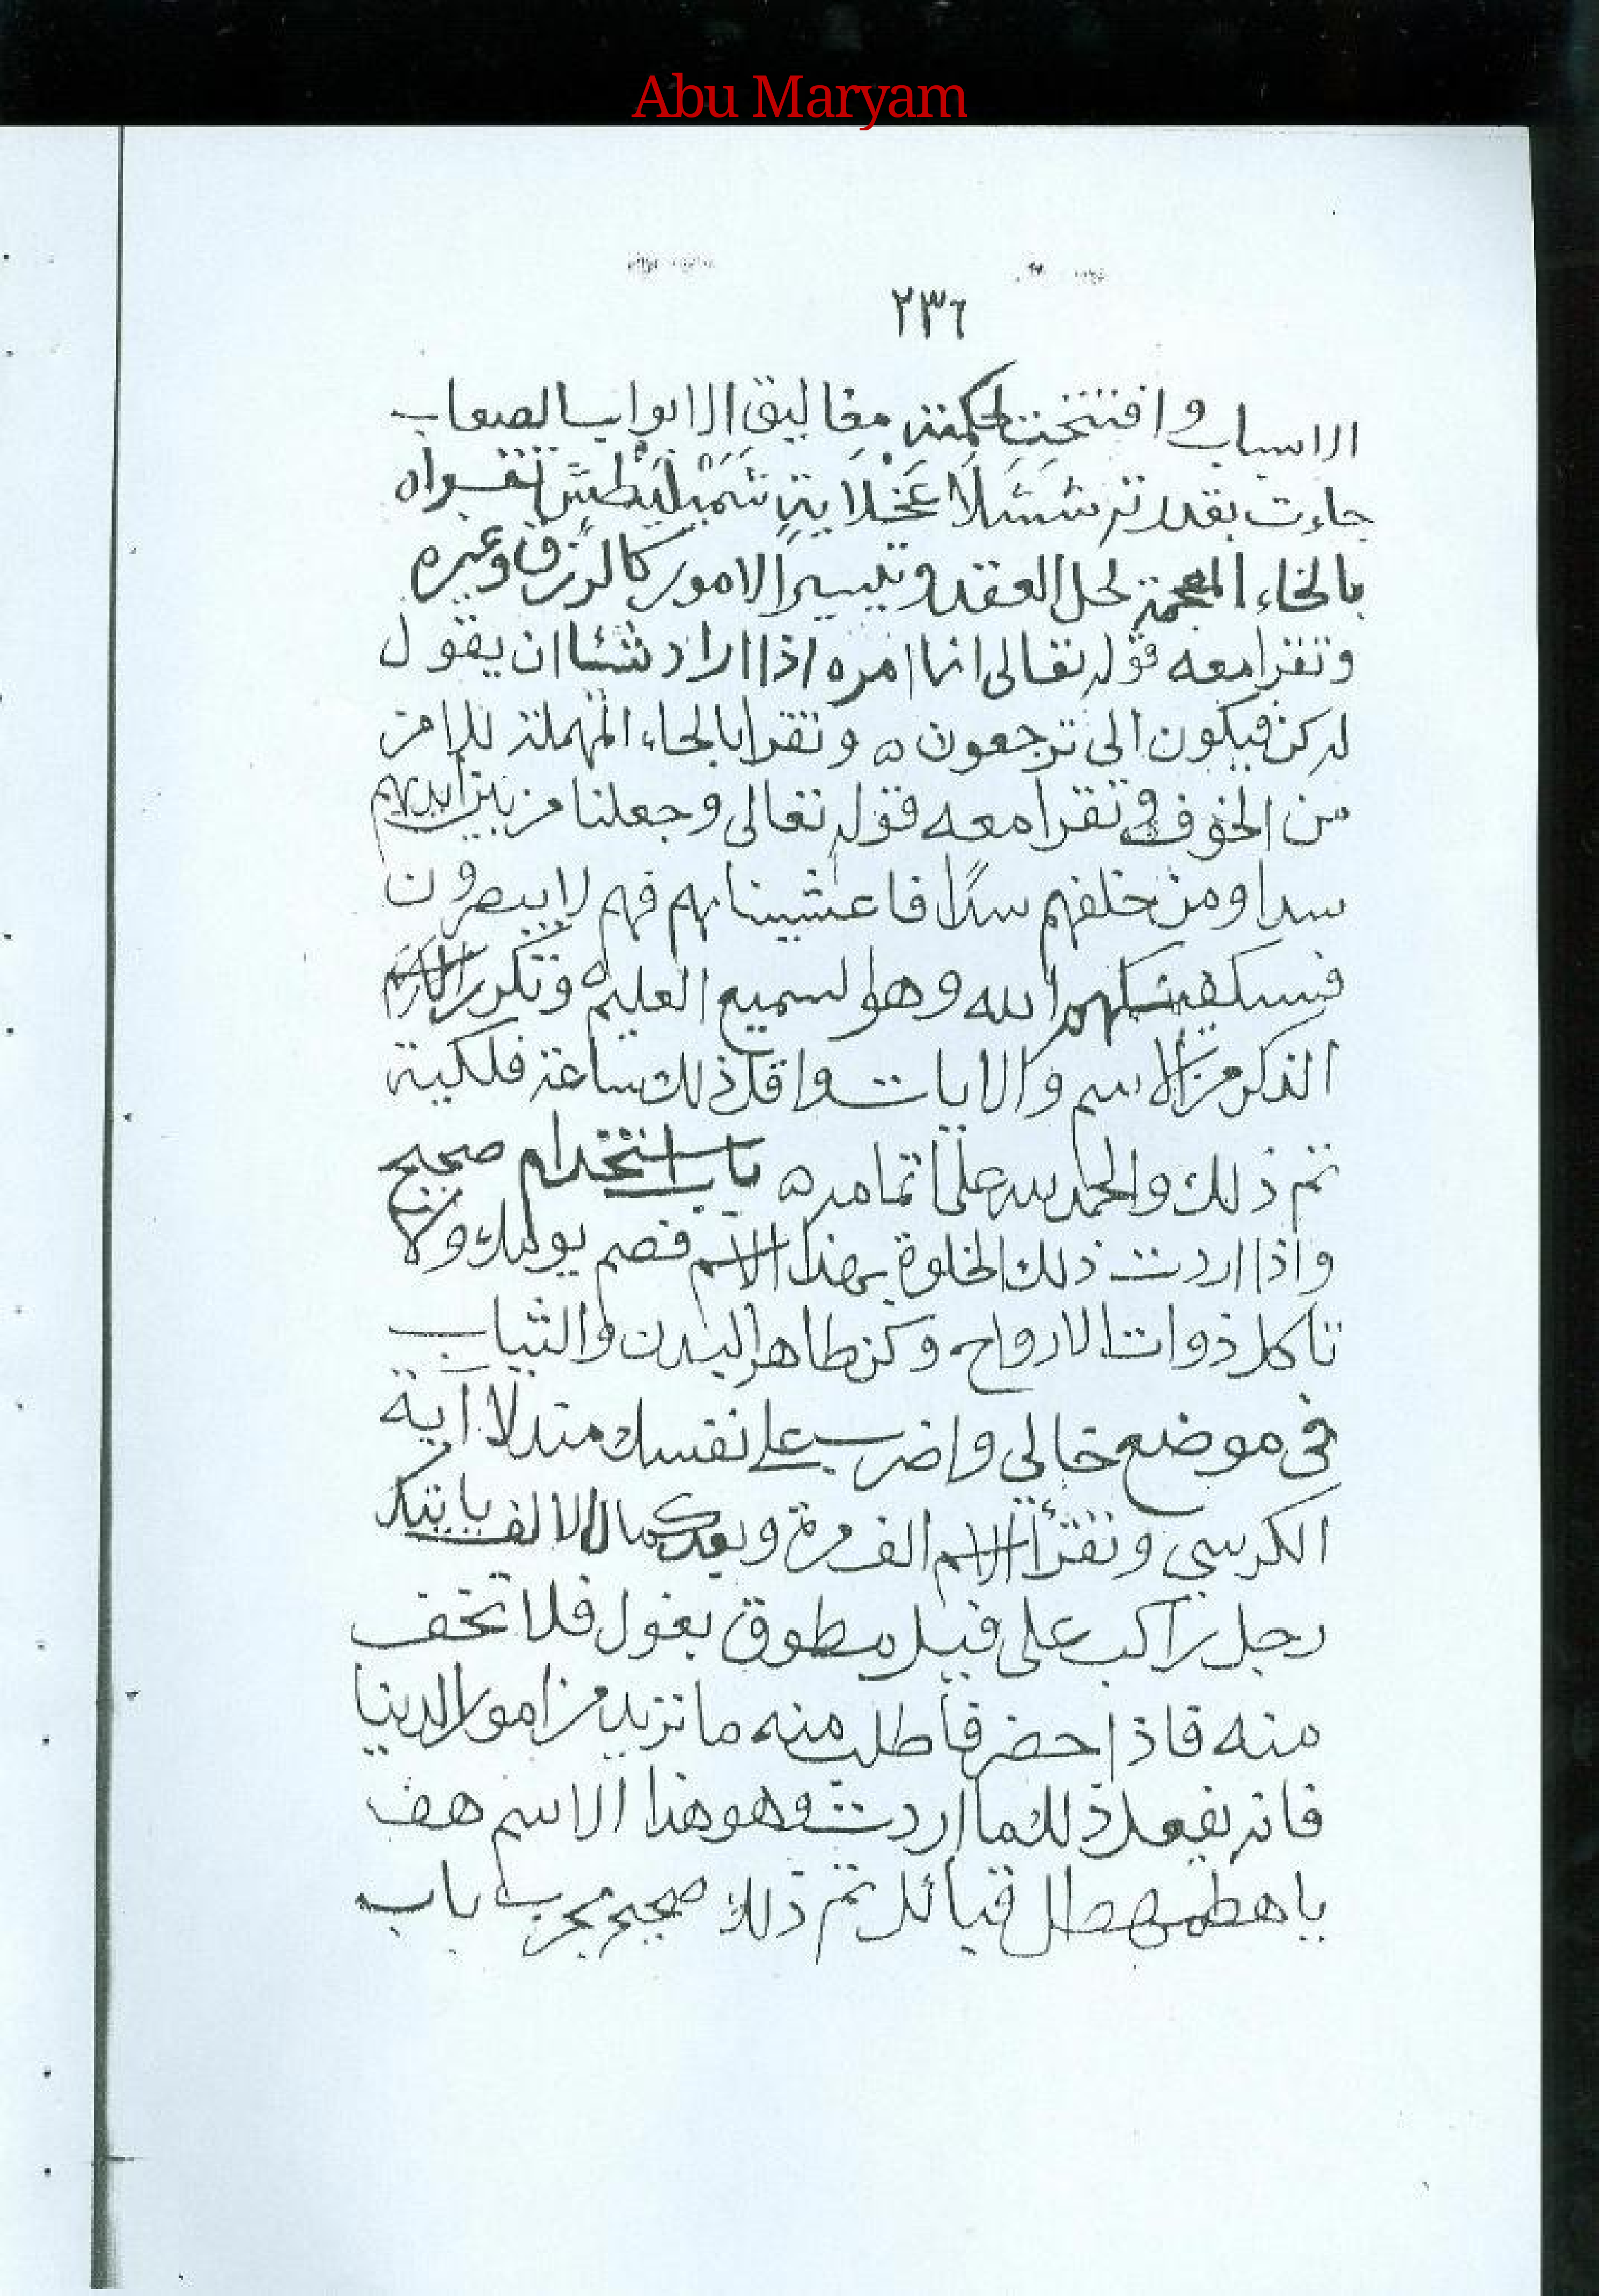 Abu Maryam
٢٣٦
الاسباب وافتتحت لحكمته مغاليق الابواب الصعاب
جاءت بقدرته شَشَلَا عَخْلَاية شَمَيْلَيَطَش تقراه
بالخاء المعجمة لحل العقد وتيسير الامور كالرزق وغيره
وتقرا معه قوله تعالى انما امره اذا اراد شئا ان يقول
له كن فيكون الى ترجعون ه وتقرا بالحاء المهملة للامن
من الخوف وتقرا معه قوله تعالى وجعلنا من بين ايديهم
سدا ومن خلفهم سدًا فاغشيناهم فهم لا يبصرون
فسيكفيكهم الله وهو السميع العليم ه وتكرر
الذكر من الاسم والايات واقل ذلك ساعة فلكية
تم ذلك والحمد لله على تمامه ه باب استخدام صحيح
واذا اردت ذلك الخلوة بهذا الاسم فصم يومك ولا
تاكل ذوات الارواح وكن طاهر البدن والثياب
في موضع خالي واضرب على نفسك مندلا آية
الكرسي وتقرأ الاسم الف مرة وبعد كمال الالف ياتيك
رجل راكب على فيل مطوق بغول فلا تخف
منه فاذا حضر فاطلب منه ما تريد من امور الدنيا
فانه يفعل ذلك ما اردت وهو هذا الاسم هف
يا هطمهطل قيائل تم ذلك صحيح مجرب باب